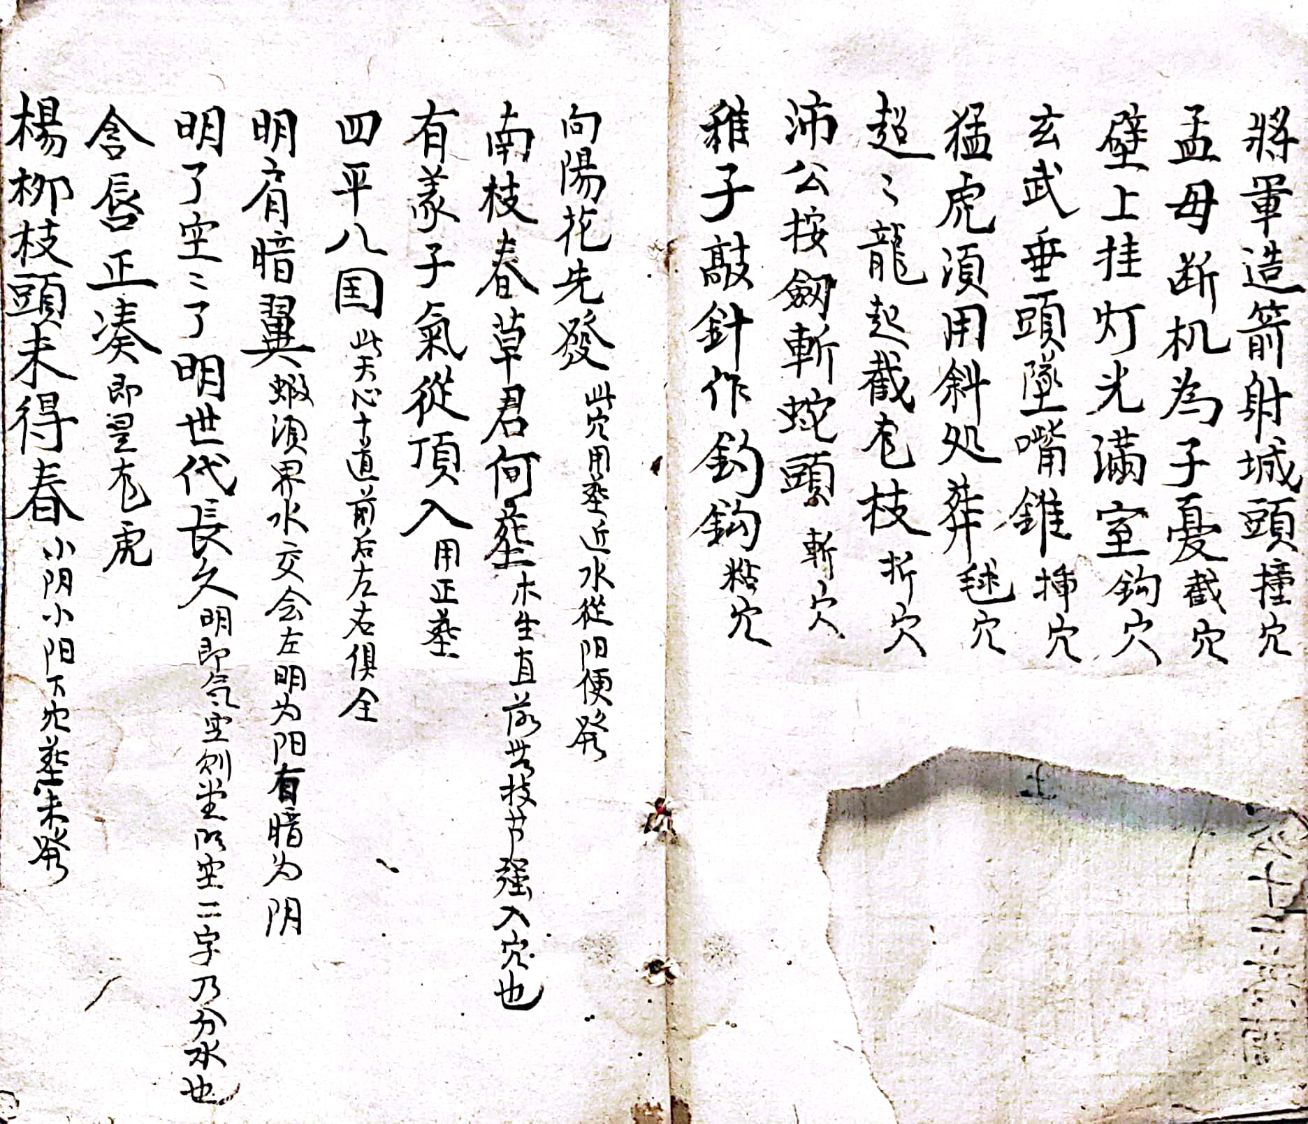 將軍造箭射城頭 撞穴
孟母断机為子憂 截穴
壁上挂灯光滿室 鈎穴
玄武垂頭墜嘴錐 插穴
猛虎湏用斜処葬 毬穴
超〻龍起截枝 折穴
沛公按劒斬蛇頭 斬穴
稚子敲針作釣鈎 粘穴
向陽花先發 此穴用塟近水從阳便發
南枝春草君何塟 木生直枝节强入穴也
有蒙子氣從頂入 用正塟
四平八国 此天心十道前后左右俱全
明肩暗翼 蝦湏界水交会左明为阳有暗为阴
明了空〻了明世代長久 明即氣空則堂明空二字乃分水也
含唇正凑 即是虎
楊柳枝頭未得春 小阴小阳下穴塟未發
土